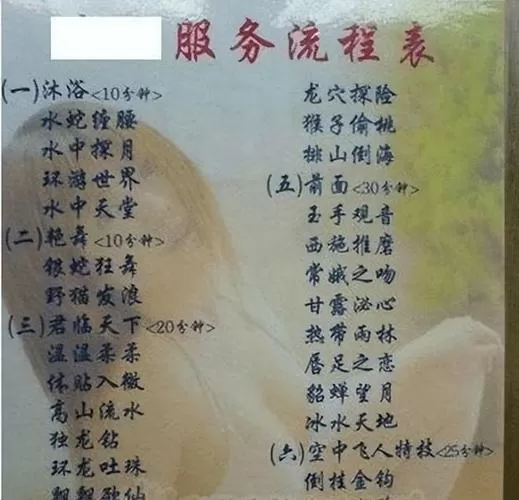 服务流程表
(一)沐浴<10分钟>
水蛇缠腰
水中探月
环游世界
水中天堂
(二)艳舞<10分钟>
银蛇狂舞
野猫发浪
(三)君临天下<20分钟>
温温柔柔
体贴入微
高山流水
独龙钻
环龙吐珠
龙穴探险
猴子偷桃
排山倒海
(五)前面<30分钟>
玉手观音
西施推磨
常娥之吻
甘露沁心
热带雨林
唇足之恋
貂蝉望月
冰水天地
(六)空中飞人特技<25分钟>
倒挂金钩